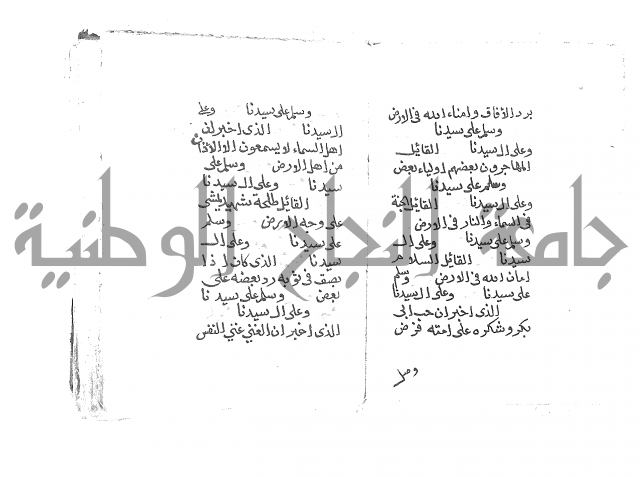 برد الآفاق وامناء الله في الارض
وسلم على سيدنا
وعلى ال سيدنا القائل
المهاجرون بعضهم اولياء بعض
وسلم على سيدنا
وعلى ال سيدنا القائل الجنة
في السماء والنار في الارض
وسلم على سيدنا وعلى ال
سيدنا القائل السلام
امان الله في الارض وسلم
على سيدنا وعلى ال سيدنا
الذى اخبر ان حب ابى
بكر وشكره على امته فرض
وسلم
وسلم على سيدنا وعلى
ال سيدنا الذى اخبر ان
اهل السماء لا يسمعون الا الاذان
من اهل الارض وسلم على
سيدنا وعلى ال سيدنا
القائل طلحة شهيد يمشى
على وجه الارض وسلم
على سيدنا وعلى ال
سيدنا الذى كان اذا
بصق في ثوبه رد بعضه على
بعض وسلم على سيدنا
وعلى ال سيدنا
الذى اخبر ان الغنى غنى النفس
جامعة النجاح الوطنية